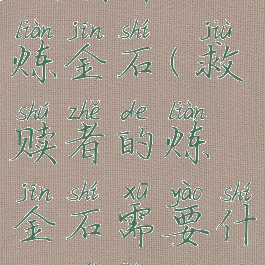 liàn jīn shí jiù
炼金石(救
shú zhě de liàn
赎者的炼
jīn shí xū yào shí
金石需要什